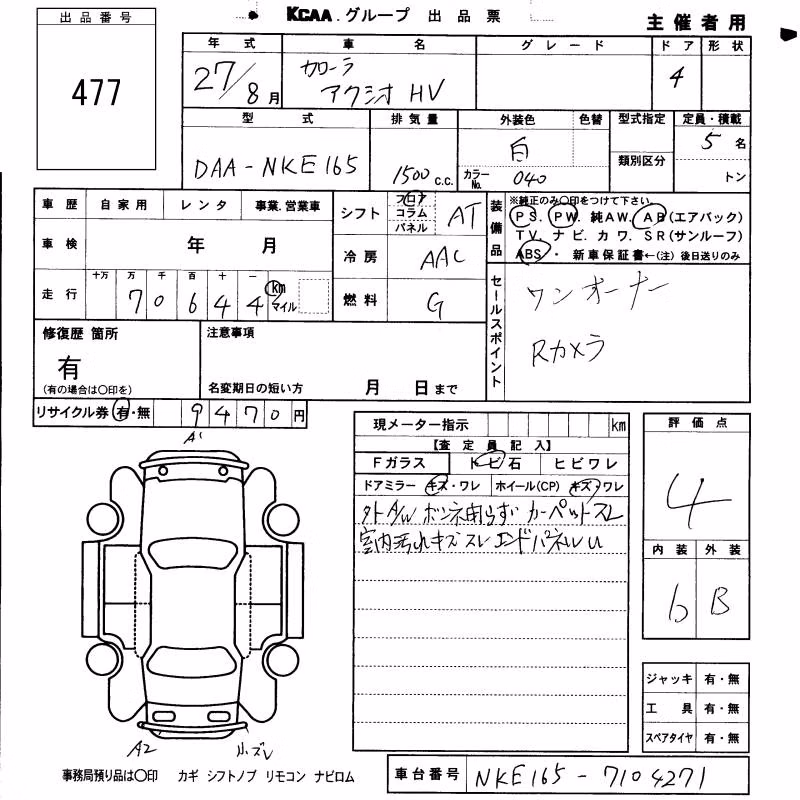 KCAA グループ 出品票
主催者用
出品番号
477
年式 車名 グレード ドア 形状
27/8月 カローラ アクシオ HV 4
型式 排気量 外装色 色替 型式指定 定員・積載
DAA-NKE165 1500c.c. 白 5名
カラーNo. 040 類別区分 トン
車歴 自家用 レンタ 事業.営業車
車検 年 月
走行 十万 万 千 百 十 一
70644 km マイル
シフト フロア コラム パネル AT
冷房 AAC
燃料 G
装備品 ※純正のみ〇印をつけて下さい。
PS. PW. 純AW. AB(エアバック)
TV. ナビ. カワ. SR(サンルーフ)
ABS・ 新車保証書←(注) 後日送りのみ
セールスポイント
ワンオーナー
Rカメラ
修復歴 箇所
有
(有の場合は〇印を)
注意事項
名変期日の短い方 月 日まで
リサイクル券 有・無 9470円
現メーター指示 km
【査定員記入】
Fガラス トビ石 ヒビワレ
ドアミラー キズ・ワレ ホイール(CP) キズ・ワレ
カーペットスレ
室内汚れキズスレ エンドパネルU
評価点
4
内装 外装
b B
ジャッキ 有・無
工具 有・無
スペアタイヤ 有・無
A1
A2
事務局預り品は〇印 カギ シフトノブ リモコン ナビロム
車台番号 NKE165-7104271